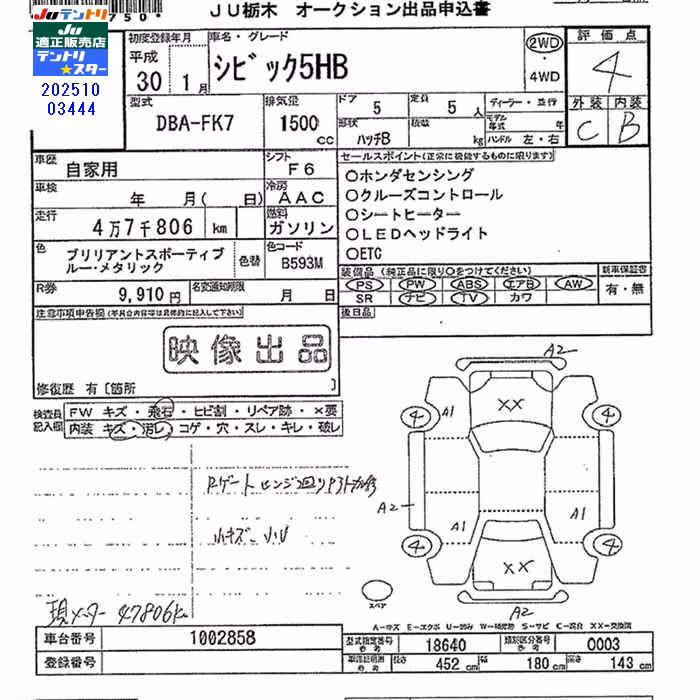 750·
JU栃木 オークション出品申込書
Juテントリ
JU
適正販売店
テントリ
スター
202510
03444
初度登録年月
平成
30 1 月
車名・グレード
シビック5HB
2WD
・
4WD
評価点
4
外装 内装
C B
型式
DBA-FK7
排気量
1500 cc
ドア 5
定員 5 人
形状 ハッチB
積載 kg
ディーラー・並行
モデル年式 年
ハンドル 左・右
車歴 自家用
シフト F6
車検 年 月( 日)
冷房 AAC
走行 4万7千806 km
燃料 ガソリン
色 ブリリアントスポーティブ
ルー・メタリック
色替
色コード B593M
R券 9,910 円
名変通知期限 月 日
セールスポイント(正常に機能するものに限ります)
○ホンダセンシング
○クルーズコントロール
○シートヒーター
○LEDヘッドライト
○ETC
装備品(純正品に限り○をつけてください)
新車保証書
PS PW ABS エアB AW
SR ナビ TV カワ
有・無
後日品
注意事項申告欄
映像出品
修復歴 有〔箇所 〕
検査員記入欄
FW キズ・飛石・ヒビ割・リペア跡・×要
内装 キズ・汚レ・コゲ・穴・スレ・キレ・破レ
Rゲートヒンジ回り
小キズ 小U
現メーター 47806km
A2
××
4 A1 4
A2
A1 A1
4 ×× 4
A2
スペア
A-キズ E-エクボ U-凹み W-補修跡 S-サビ C-腐食 XX-交換済
車台番号 1002858
登録番号
型式指定番号 参考 18640
類別区分番号 参考 0003
長さ 452 幅 180 高さ 143 cm